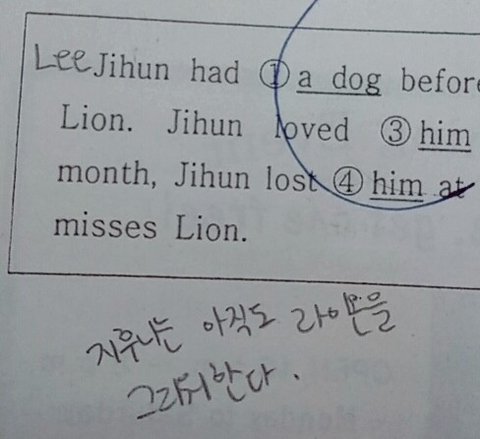 Lee Jihun had ① a dog before
Lion. Jihun loved ③ him
month, Jihun lost ④ him at
misses Lion.
지우나는 아직도 라이온을
그리워한다.